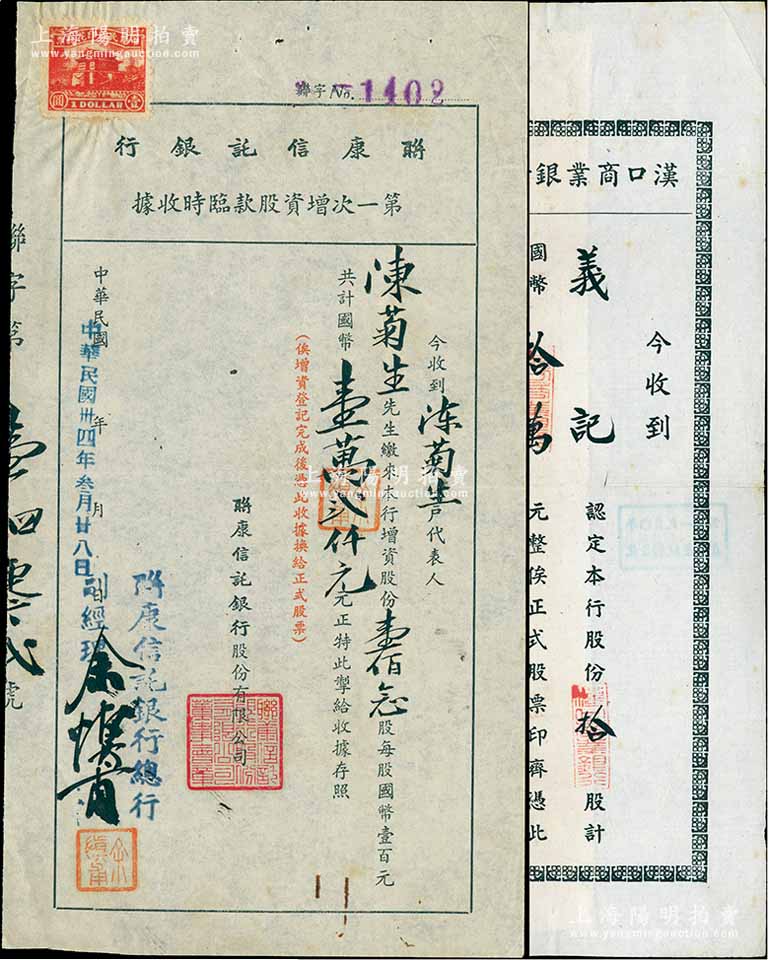 上海陽明拍賣
www.yangmingauction.com
1 DOLLAR
聯字No. 1402
聯康信託銀行
第一次增資股款臨時收據
今收到陳菊生戶代表人
陳菊生先生繳來本行增資股份壹佰念股每股國幣壹百元
共計國幣壹萬弍仟元元正特此掣給收據存照
(俟增資登記完成後憑此收據換給正式股票)
聯康信託銀行股份有限公司
中華民國 年 月
中華民國卅四年叁月廿八日
聯康信託銀行總行
副經理
聯字第壹四零弍號
漢口商業銀
今收到
義記
認定本行股份拾股計
國幣拾萬元整俟正式股票印齊憑此
上海陽明拍賣
www.yangmingauction.com
上海陽明拍賣
www.yangmingauction.com